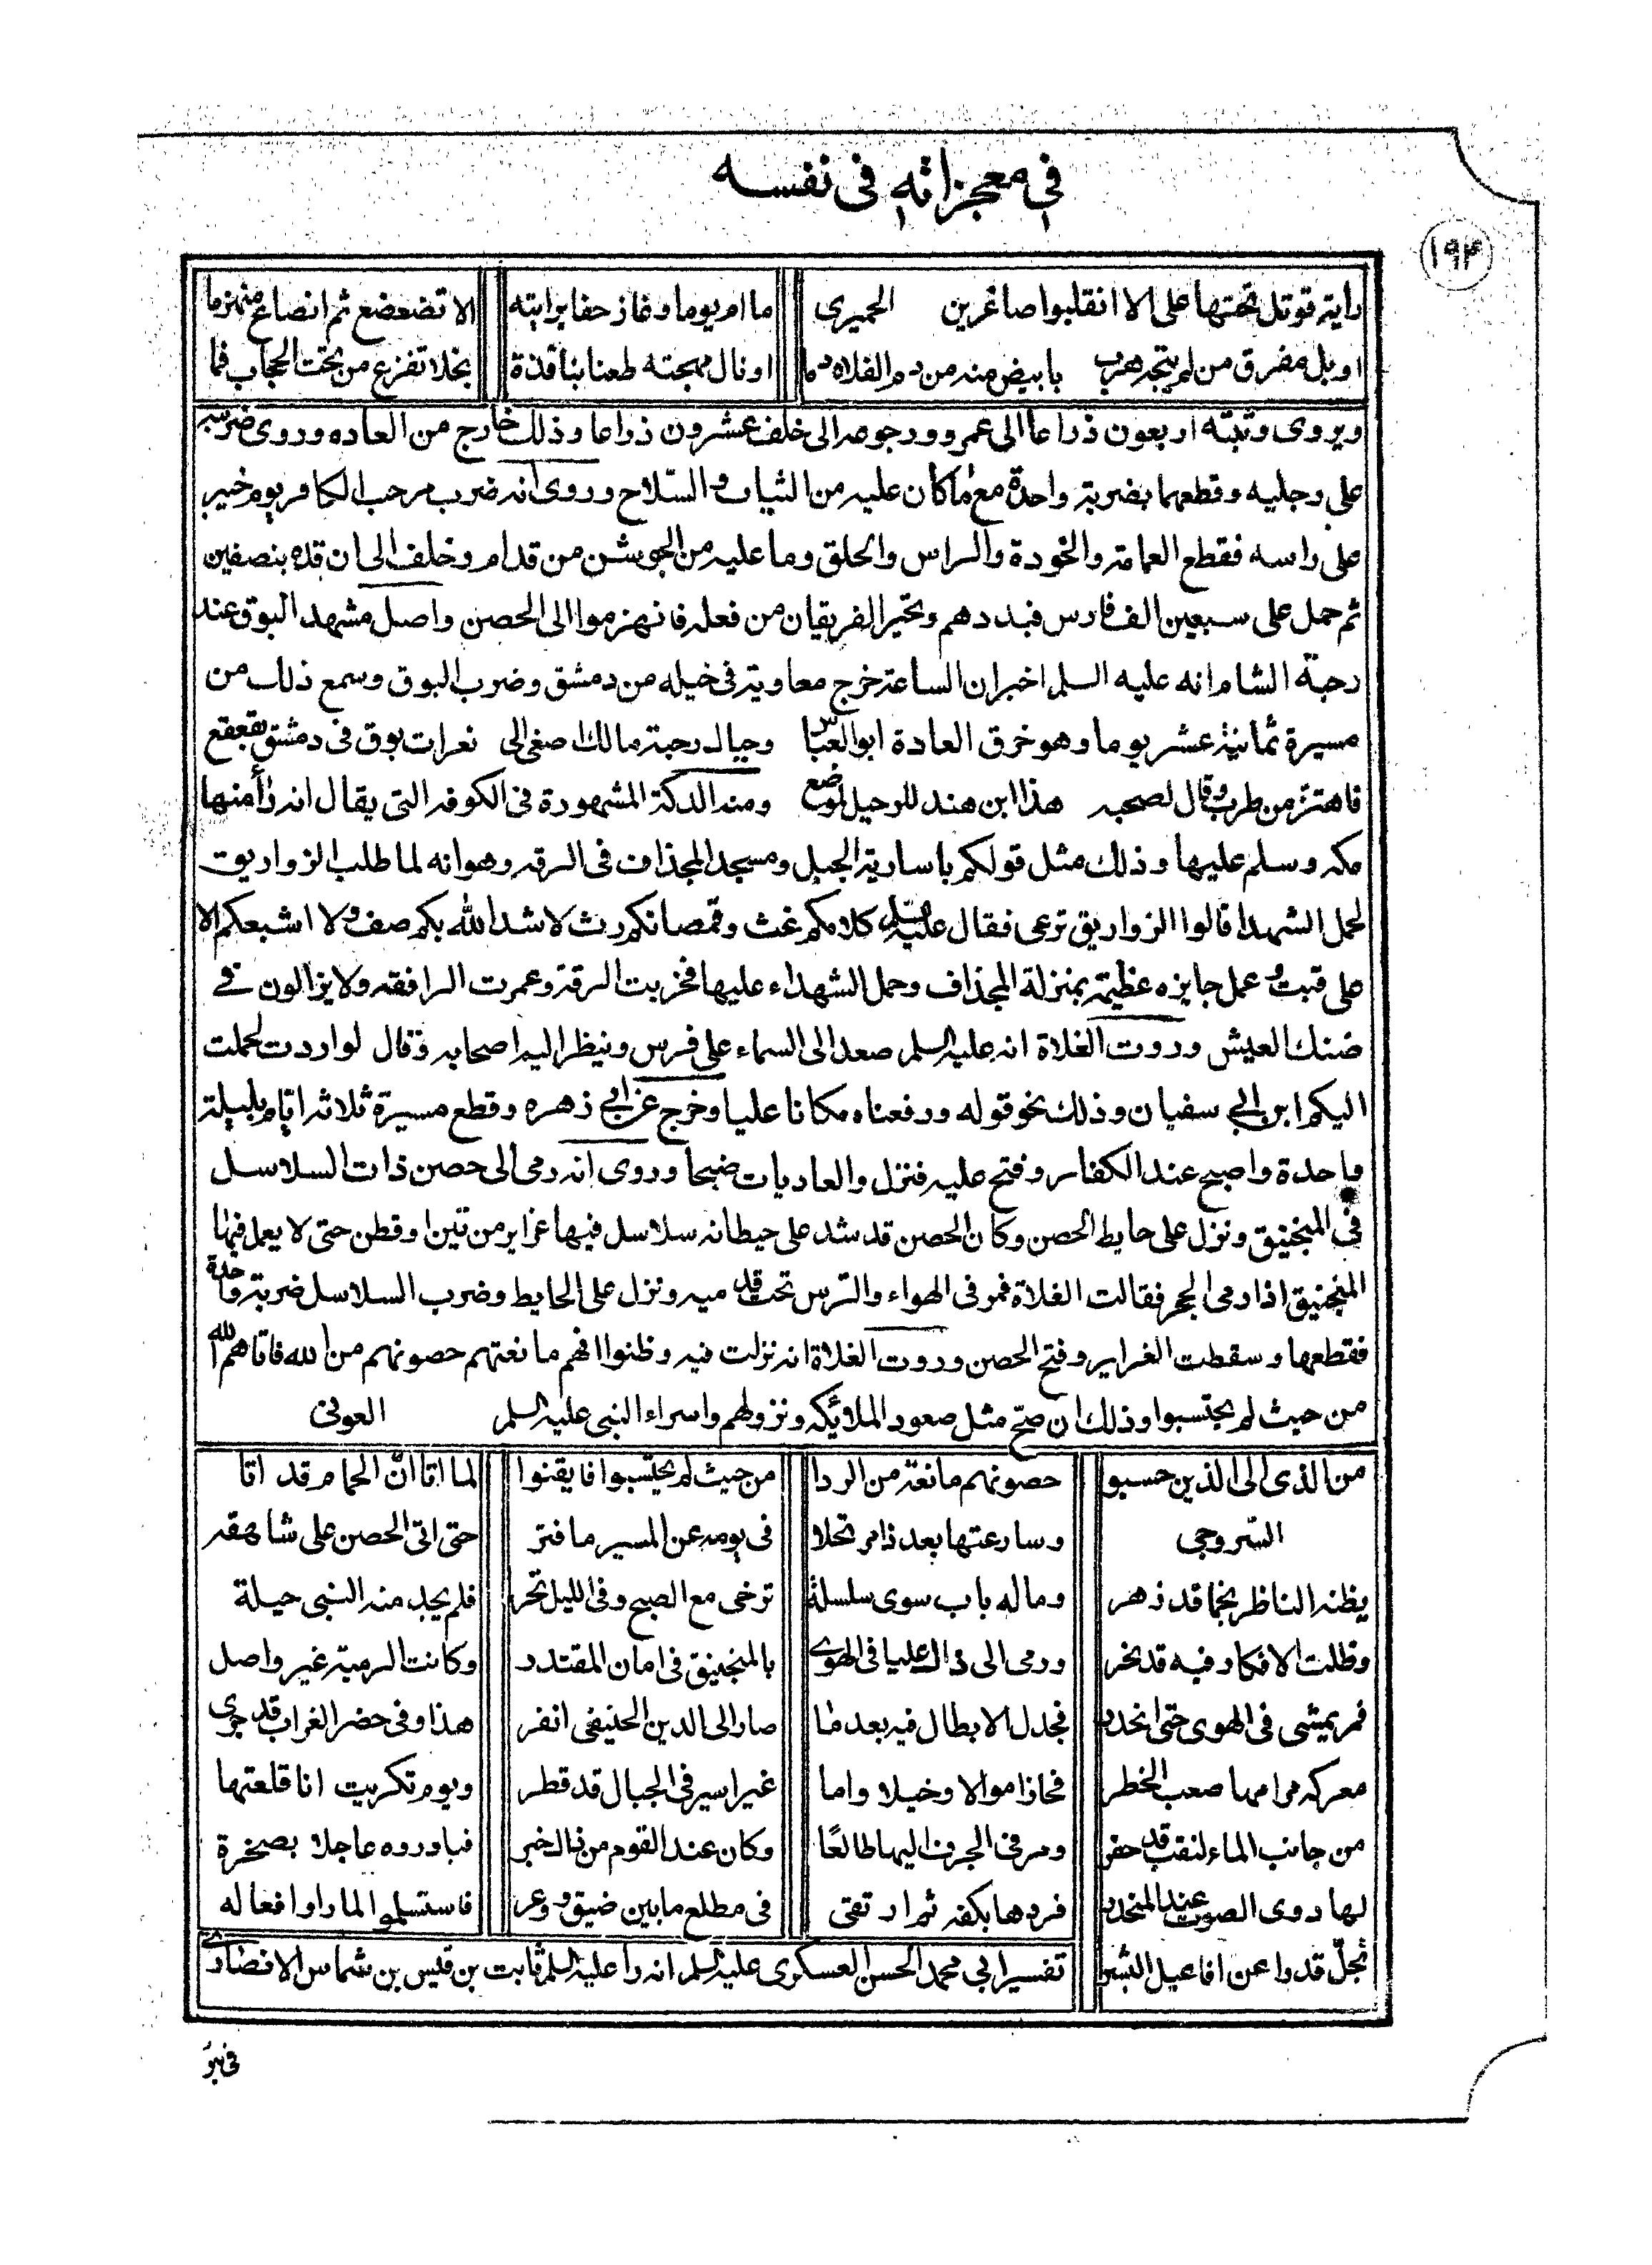 في معجزاته في نفسه
١٩٤
راية قوتل تحتها على الا انقلبوا صاغرين الحميرى ما ام يوما وغاز حفا برايته الا تضعضع ثم انصاع منهزما
اوبل مفرق من لم ينجه هرب بابيض منه من دم الفلاه دما او نال مهجته طعنا بنافذة نجلا تفزع من تحت الحجاب فما
ويروى وثبته اربعون ذراعا الى عمرو ورجوعه الى خلف عشرون ذراعا وذلك خارج من العاده وروى ضربته
على رجليه وقطعهما بضربة واحدة مع ما كان عليه من الثياب والسلاح وروى انه ضرب مرحب الكافر يوم خيبر
على راسه فقطع العمامة والخودة والراس والحلق وما عليه من الجوشن من قدام وخلف الى ان قده بنصفين
ثم حمل على سبعين الف فارس فبددهم وتحير الفريقان من فعله فانهزموا الى الحصن واصل مشهد البوق عند
رحبة الشام انه عليه السلم اخبر ان الساعة خرج معاوية في خيله من دمشق وضرب البوق وسمع ذلك من
مسيرة ثمانية عشر يوما وهو خرق العادة ابو العباس وحيال رحبة مالك اصغى الى نعرات بوق في دمشق تقعقع
فاهتز من طرب وقال لصحبه هذا ابن هند للرحيل لموضع ومنه الدكة المشهورة في الكوفه التي يقال انه رأ منها
مكه وسلم عليها وذلك مثل قولكم يا سارية الجبل ومسجد المجذاف في الرقه وهو انه لما طلب الزواريق
لحمل الشهدا قالوا الزواريق ترعى فقال عليه السلم كلامكم غث وقمصانكم رث لا شد الله بكم صف ولا اشبعكم الا
على قتب وعمل جايزه عظيمة بمنزلة المجذاف وحمل الشهداء عليها فخربت الرقة وعمرت الرافقه ولا يزالون في
ضنك العيش وروت الغلاة انه عليه السلم صعد الى السماء على فرس وينظر اليه اصحابه وقال لو اردت لحملت
اليكم ابن ابي سفيان وذلك نحو قوله ورفعناه مكانا عليا وخرج عن ابي زهره وقطع مسيرة ثلاثة ايام بليلة
واحدة واصبح عند الكفار وفتح عليه فنزل والعاديات ضبحا وروى انه رمى الى حصن ذات السلاسل
في المنجنيق ونزل على حايط الحصن وكان الحصن قد شد على حيطانه سلاسل فيها غراير من تبن او قطن حتى لا يعمل فيها
المنجنيق اذا رمى الحجر فقالت الغلاة فمر في الهواء والترس تحت قدميه ونزل على الحايط وضرب السلاسل ضربة واحدة
فقطعها وسقطت الغراير وفتح الحصن وروت الغلاة انه نزلت فيه وظنوا انهم مانعتهم حصونهم من الله فاتاهم الله
من حيث لم يحتسبوا وذلك ان صح مثل صعود الملائكه ونزولهم واسراء النبي عليه السلم العوني
من الذى الى الذين حسبوا حصونهم مانعة من الردا من حيث لم يحتسبوا فايقنوا لما اتا ان الحمام قد اتا
السروجي وسار عتها بعد ذا مرتحلا في يومه عن المسير ما فتر حتى اتى الحصن على شاهقه
يظنه الناظر نجما قد زهر وما له باب سوى سلسلة ترخى مع الصبح وفي الليل تجر فلم يجد منه النبى حيلة
وظلت الافكار فيه قد تخر ورمى الى ذاك عليا في الهوى بالمنجنيق في امان المقتدر وكانت الرمية غير واصل
فمر يمشى في الهوى حتى انحدر فجدل الابطال فيه بعد ما صار الى الدين الحنيفي انفر هذا وفي حضر الغراب قد جرى
معركه مرامها صعب الخطر فحاز اموالا وخيلا واما غير اسير في الجبال قد قطر ويوم تكريت انا قلعتها
من جانب الماء لنقب قد حفر ومر في الجرف اليها طالعًا وكان عند القوم من ذاك خبر فبادروه عاجلا بصخرة
لها دوى الصوت عند المنحدر فردها بكفه ثم ارتقى في مطلع ما بين ضيق وعر فاستسلموا لما راوا افعاله
تجلّ قدرا عن افاعيل البشر تفسير ابي محمد الحسن العسكرى عليه السلم انه را عليه السلم ثابت بن قيس بن شماس الانصارى
في بئر